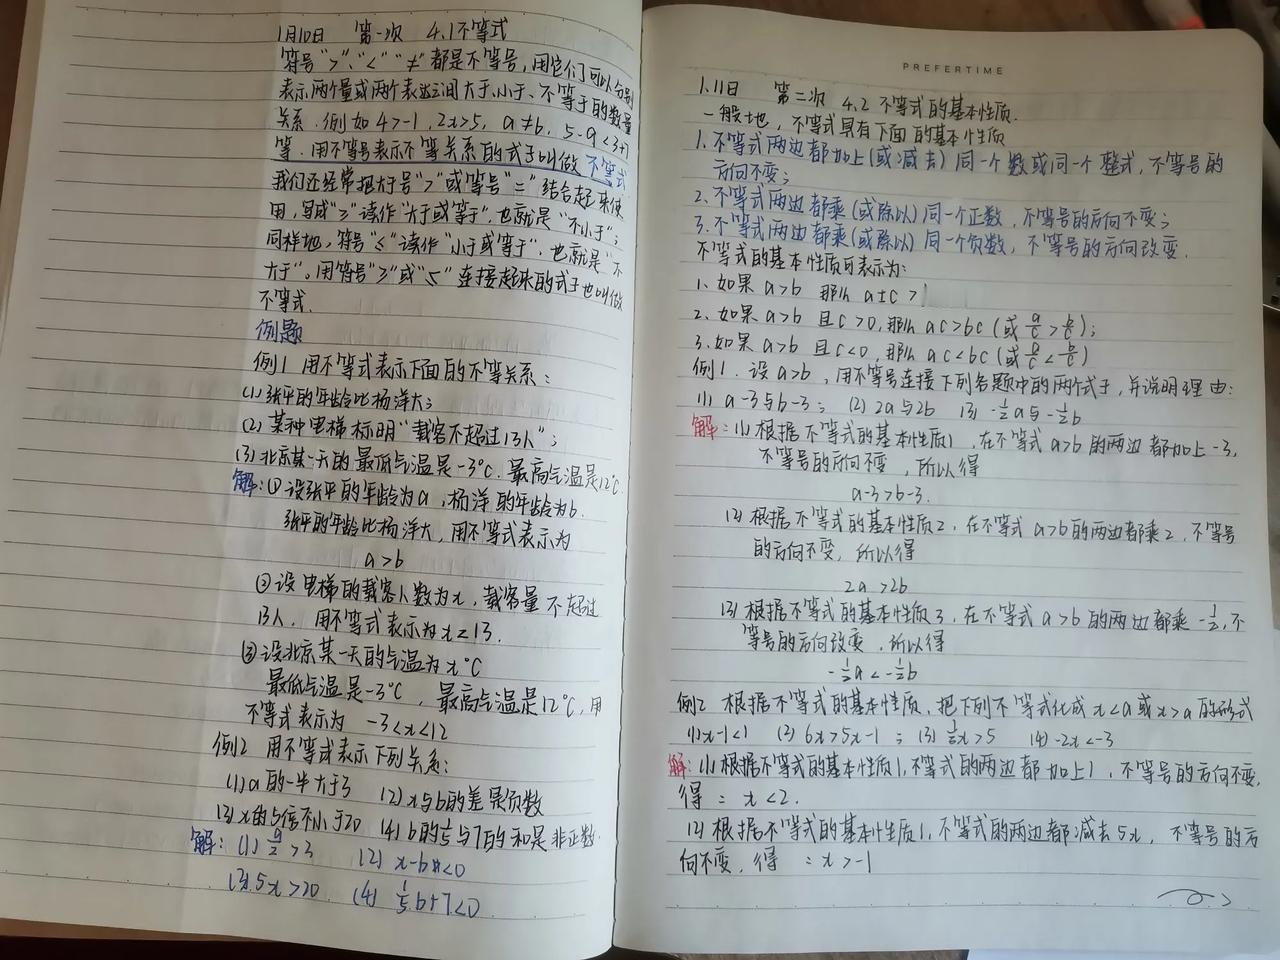 1月10日 第一次 4.1不等式
符号“>”、“<”“≠”都是不等号,用它们可以分别
表示两个量或两个表达之间大于、小于、不等于的数量
关系.例如4>-1,2x>5, a≠b, 5-a<3+1
等.用不等号表示不等关系的式子叫做不等式
我们还经常把大于号“>”或等号“=”结合起来使
用,写成“≥”读作“大于或等于”,也就是“不小于”;
同样地,符号“≤”读作“小于或等于”,也就是“不
大于”。用符号“≥”或“≤”连接起来的式子也叫做
不等式.
例题
例1 用不等式表示下面的不等关系:
(1)张平的年龄比杨洋大;
(2)某种电梯标明“载客不超过13人”;
(3)北京某一天的最低气温是-3°C.最高气温是12°C.
解:①设张平的年龄为a,杨洋的年龄为b.
张平的年龄比杨洋大,用不等式表示为
a>b
②设电梯的载客人数为x,载容量不超过
13人,用不等式表示为x≤13.
③设北京某一天的气温为x°C
最低气温是-3°C,最高气温是12°C,用
不等式表示为 -3<x<12
例2 用不等式表示下列关系:
(1)a的一半大于3 (2)x与b的差是负数
(3)x的5倍不小于20 (4)b的1/5与7的和是非正数
解:(1) a/2>3 (2) x-b<0
(3)5x>20 (4) 1/5b+7<0
PREFERTIME
1.11日 第二次 4.2 不等式的基本性质.
一般地,不等式具有下面的基本性质
1.不等式两边都加上(或减去)同一个数或同一个整式,不等号的
方向不变;
2.不等式两边都乘(或除以)同一个正数,不等号的方向不变;
3.不等式两边都乘(或除以)同一个负数,不等号的方向改变.
不等式的基本性质可表示为:
1.如果a>b 那么 a±c >
2.如果a>b 且c>0,那么ac>bc(或a/c>b/c);
3.如果a>b 且c<0,那么ac<bc(或a/c<b/c)
例1.设a>b,用不等号连接下列各题中的两个式子,并说明理由:
(1) a-3与b-3; (2) 2a与2b (3) -1/2a与-1/2b
解:(1)根据不等式的基本性质1,在不等式a>b的两边都加上-3,
不等号的方向不变,所以得
a-3>b-3.
(2)根据不等式的基本性质2,在不等式a>b的两边都乘2,不等号
的方向不变,所以得
2a>2b
(3)根据不等式的基本性质3,在不等式a>b的两边都乘-1/2,不
等号的方向改变,所以得
-1/2a<-1/2b
例2 根据不等式的基本性质,把下列不等式化成x<a或x>a的形式
(1)x-1<1 (2) 6x>5x-1; (3) 1/2x>5 (4)-2x<-3
解:(1)根据不等式的基本性质1,不等式的两边都加上1,不等号的方向不变,
得:x<2.
(2)根据不等式的基本性质1,不等式的两边都减去5x,不等号的方
向不变,得:x>-1